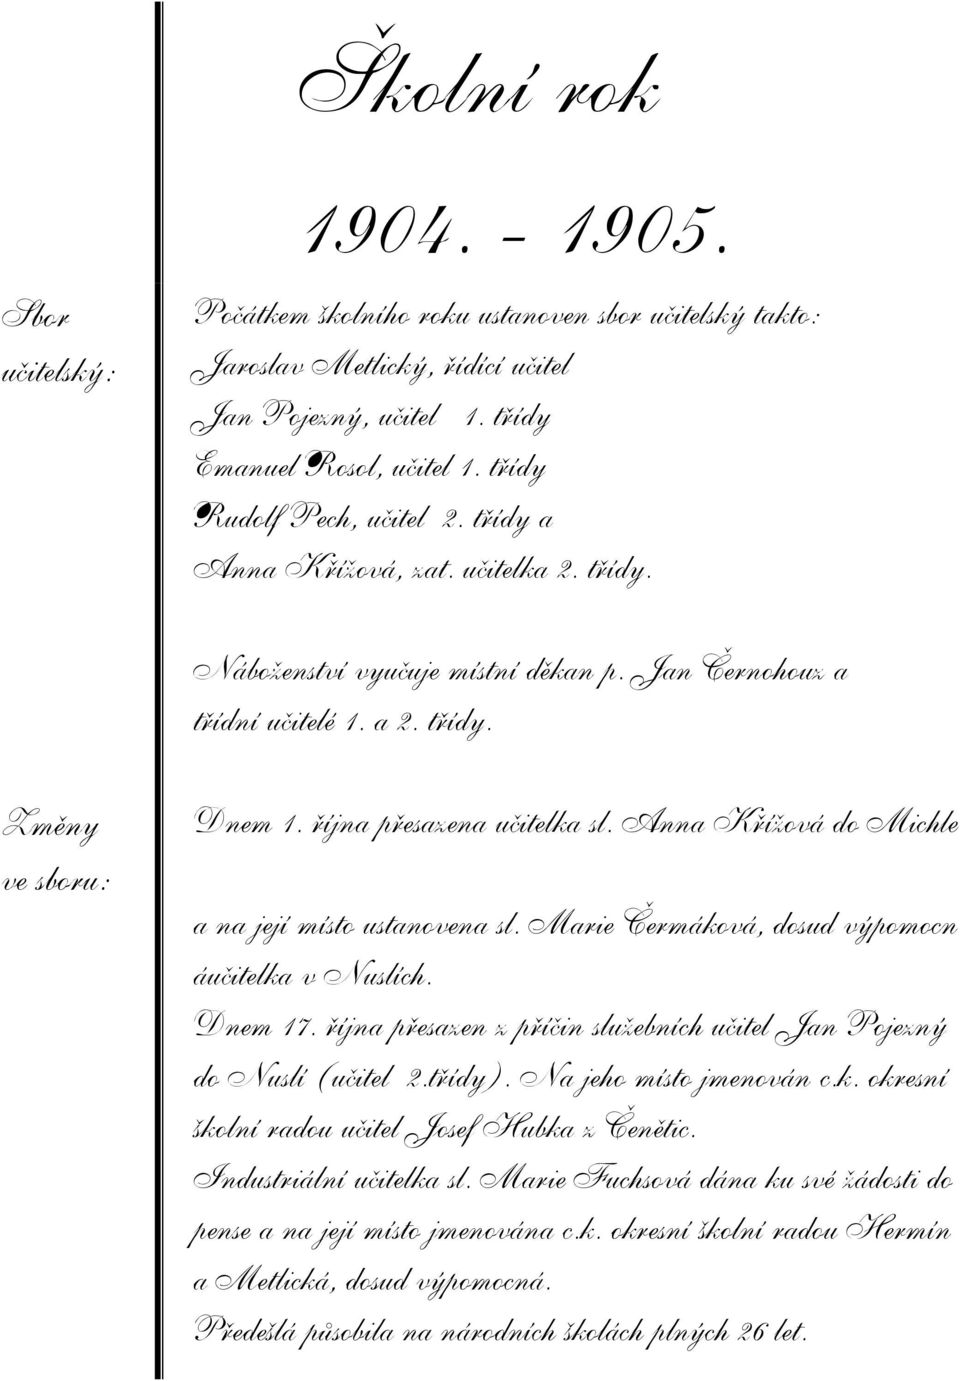 Školní rok
1904. - 1905.
Sbor
učitelský:
Počátkem školního roku ustanoven sbor učitelský takto:
Jaroslav Metlický, řídící učitel
Jan Pojezný, učitel 1. třídy
Emanuel Rosol, učitel 1. třídy
Rudolf Pech, učitel 2. třídy a
Anna Křížová, zat. učitelka 2. třídy.
Náboženství vyučuje místní děkan p. Jan Černohouz a
třídní učitelé 1. a 2. třídy.
Změny
ve sboru:
Dnem 1. října přesazena učitelka sl. Anna Křížová do Michle
a na její místo ustanovena sl. Marie Čermáková, dosud výpomocn
áučitelka v Nuslích.
Dnem 17. října přesazen z příčin služebních učitel Jan Pojezný
do Nuslí (učitel 2.třídy). Na jeho místo jmenován c.k. okresní
školní radou učitel Josef Hubka z Čenětic.
Industriální učitelka sl. Marie Fuchsová dána ku své žádosti do
pense a na její místo jmenována c.k. okresní školní radou Hermín
a Metlická, dosud výpomocná.
Předešlá působila na národních školách plných 26 let.